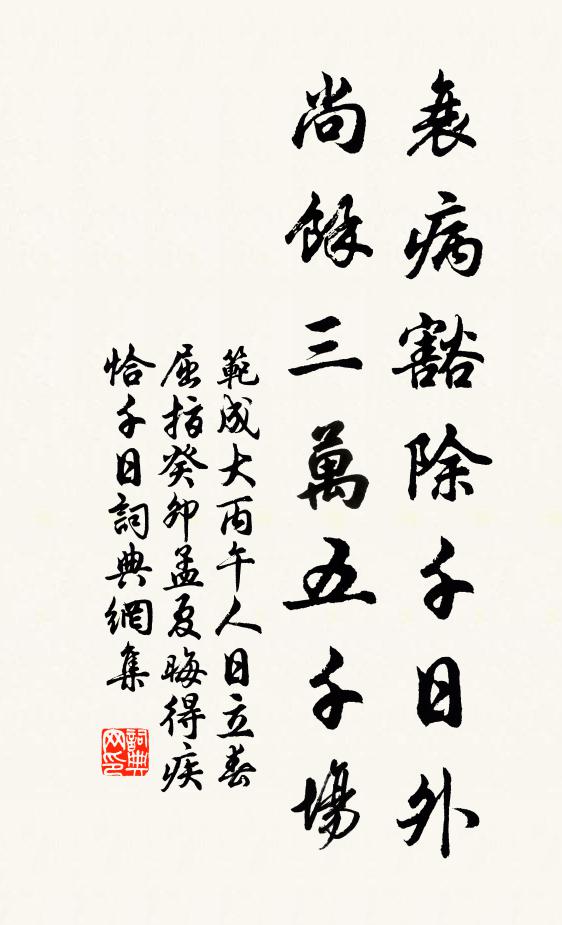 衰病豁除千日外
尚餘三萬五千場
範成大丙午人日立春
屈指癸卯孟夏晦得疾
恰千日詞典網集
詞典
网印